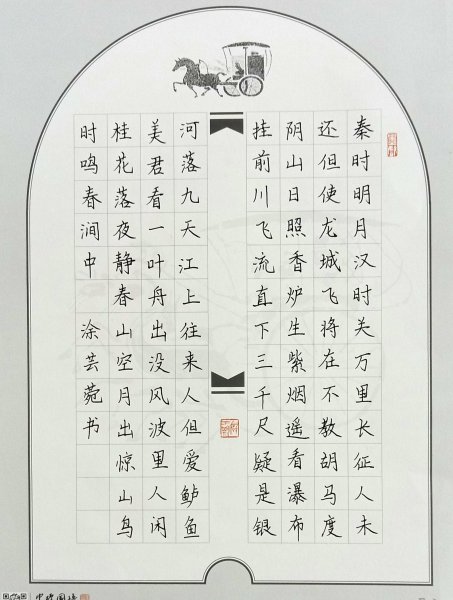 秦时明月汉时关万里长征人未
还但使龙城飞将在不教胡马度
阴山日照香炉生紫烟遥看瀑布
挂前川飞流直下三千尺疑是银
河落九天江上往来人但爱鲈鱼
美君看一叶舟出没风波里人闲
桂花落夜静春山空月出惊山鸟
时鸣春涧中 涂芸菀书